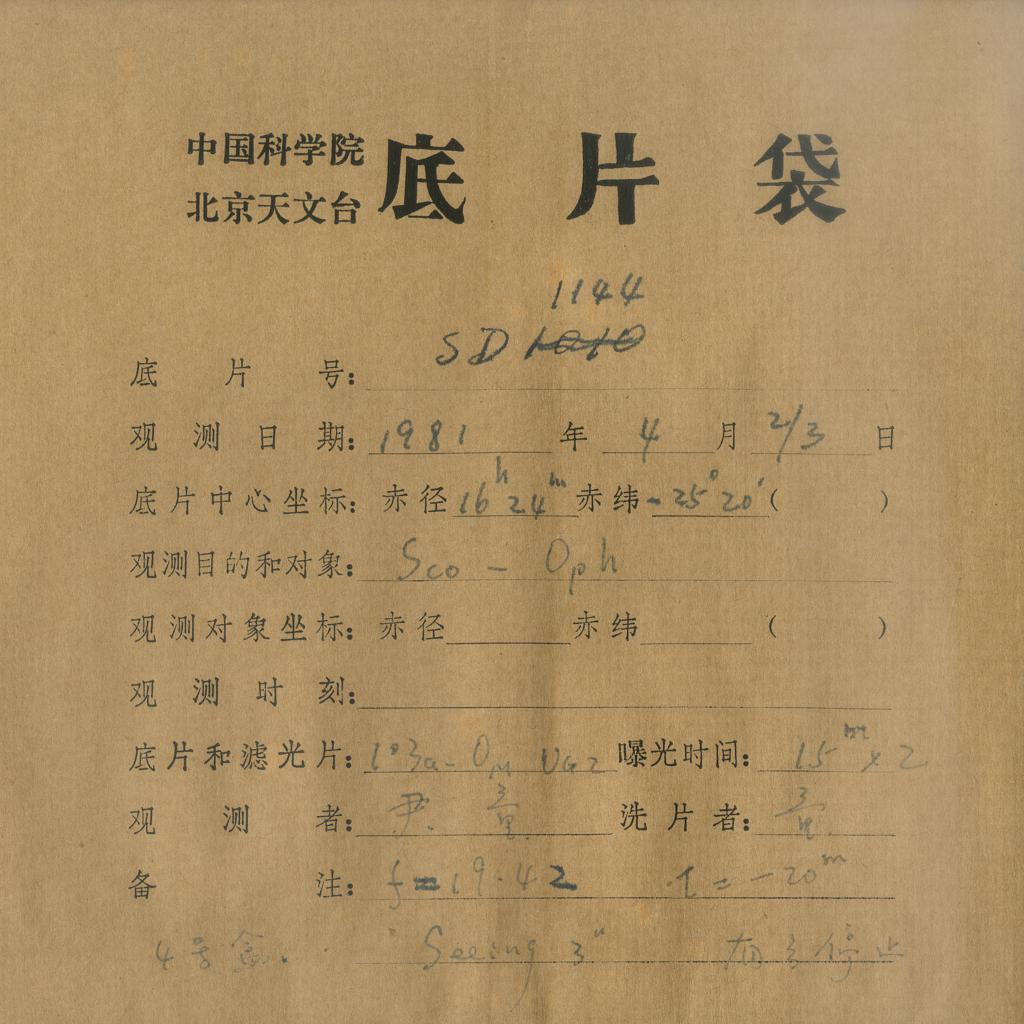 中国科学院
北京天文台
底片袋
1144
底片号: SD 1010
观测日期: 1981 年 4 月 2/3 日
底片中心坐标: 赤径 16h 24m 赤纬 -25°20′ ( )
观测目的和对象: Sco - Oph
观测对象坐标: 赤径 赤纬 ( )
观测时刻:
底片和滤光片: 103a-O UG2 曝光时间: 15m x 2
观测者: 尹. 童. 洗片者: 童.
备注: f=19.42 t = -20m
4号盒. Seeing 3″ 停止